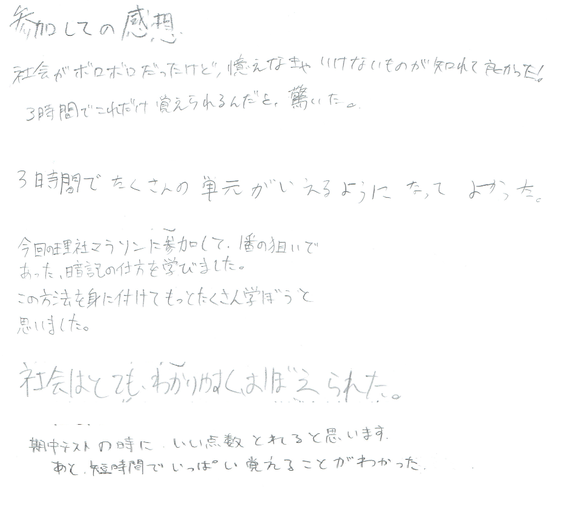 参加しての感想
社会がボロボロだったけど、憶えなきゃいけないものが知れて良かった!
3時間でこれだけ覚えられるんだと、驚いた。
3時間でたくさんの単元がいえるようになってよかった。
今回の理社マラソンに参加して、1番の狙いで
あった、暗記の仕方を学びました。
この方法を身に付けてもっとたくさん学ぼうと
思いました。
社会はとても、わかりやすく、おぼえられた。
期中テストの時に、いい点数とれると思います。
あと、短時間でいっぱい覚えることがわかった。